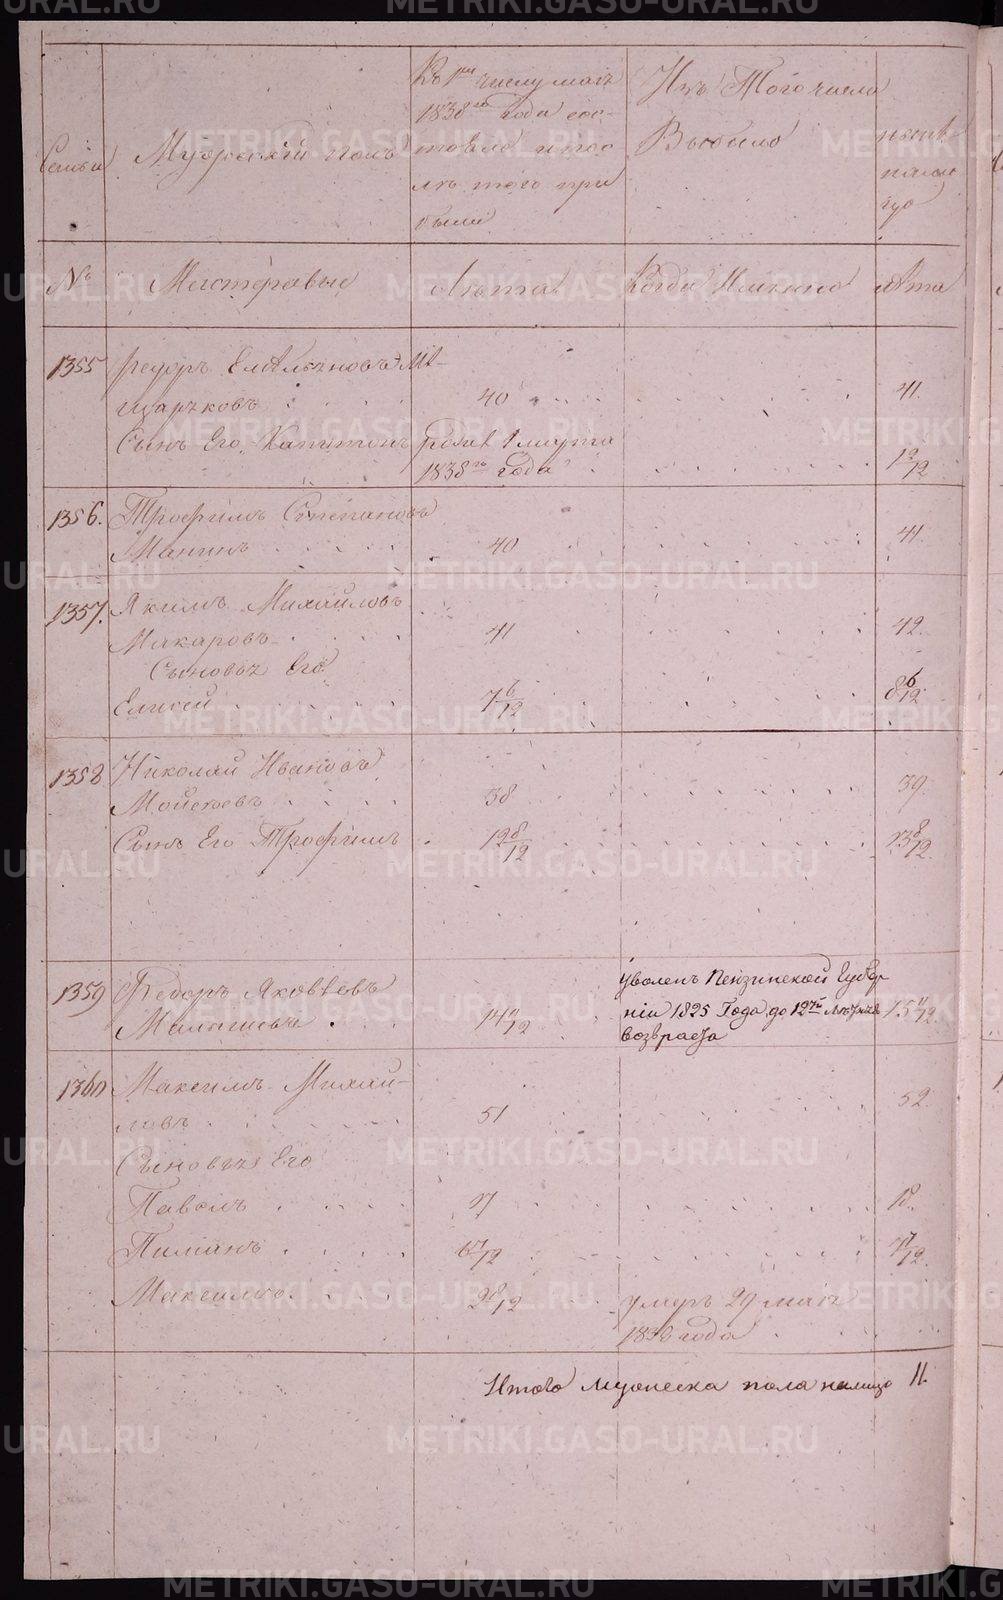 Семьи
Мужескiй полъ
Къ 1му числу маiя
1838го года сос-
тояло и пос
лѣ того при
были
Изъ Того числа
Выбыло
налицо
№
Мастеровые
Лѣта
Когда Именно
Лѣта
1355 Федоръ Емельяновъ Ме-
щаряковъ 40 41.
Сынъ Его Капитонъ Родил 1 марта
1838го года 1 2/12
1356. Трофимъ Степановъ
Манинъ 40 41
1357. Якимъ Михайловъ
Макаровъ 41 42.
Сыновья Его
Елисей 7 6/12 8 6/12
1358 Николай Ивановъ
Мойсѣевъ 38 39
Сынъ Его Трофимъ 12 8/12 13 8/12
1359 Федоръ Яковлевъ
Малышевъ 14 11/12 15 11/12
уволенъ Пензинской Губер
нiи 1825 Года до 12ти лѣтняго
возраста
1360 Максимъ Михай-
ловъ 51 52
Сыновья Его
Павелъ 17 18.
Пиминъ 6 7/12 7 7/12
Максимъ 2 8/12 умеръ 29 маiя
1838 года
Итого мужеска пола налицо 11.
METRIKI.GASO-URAL.RU